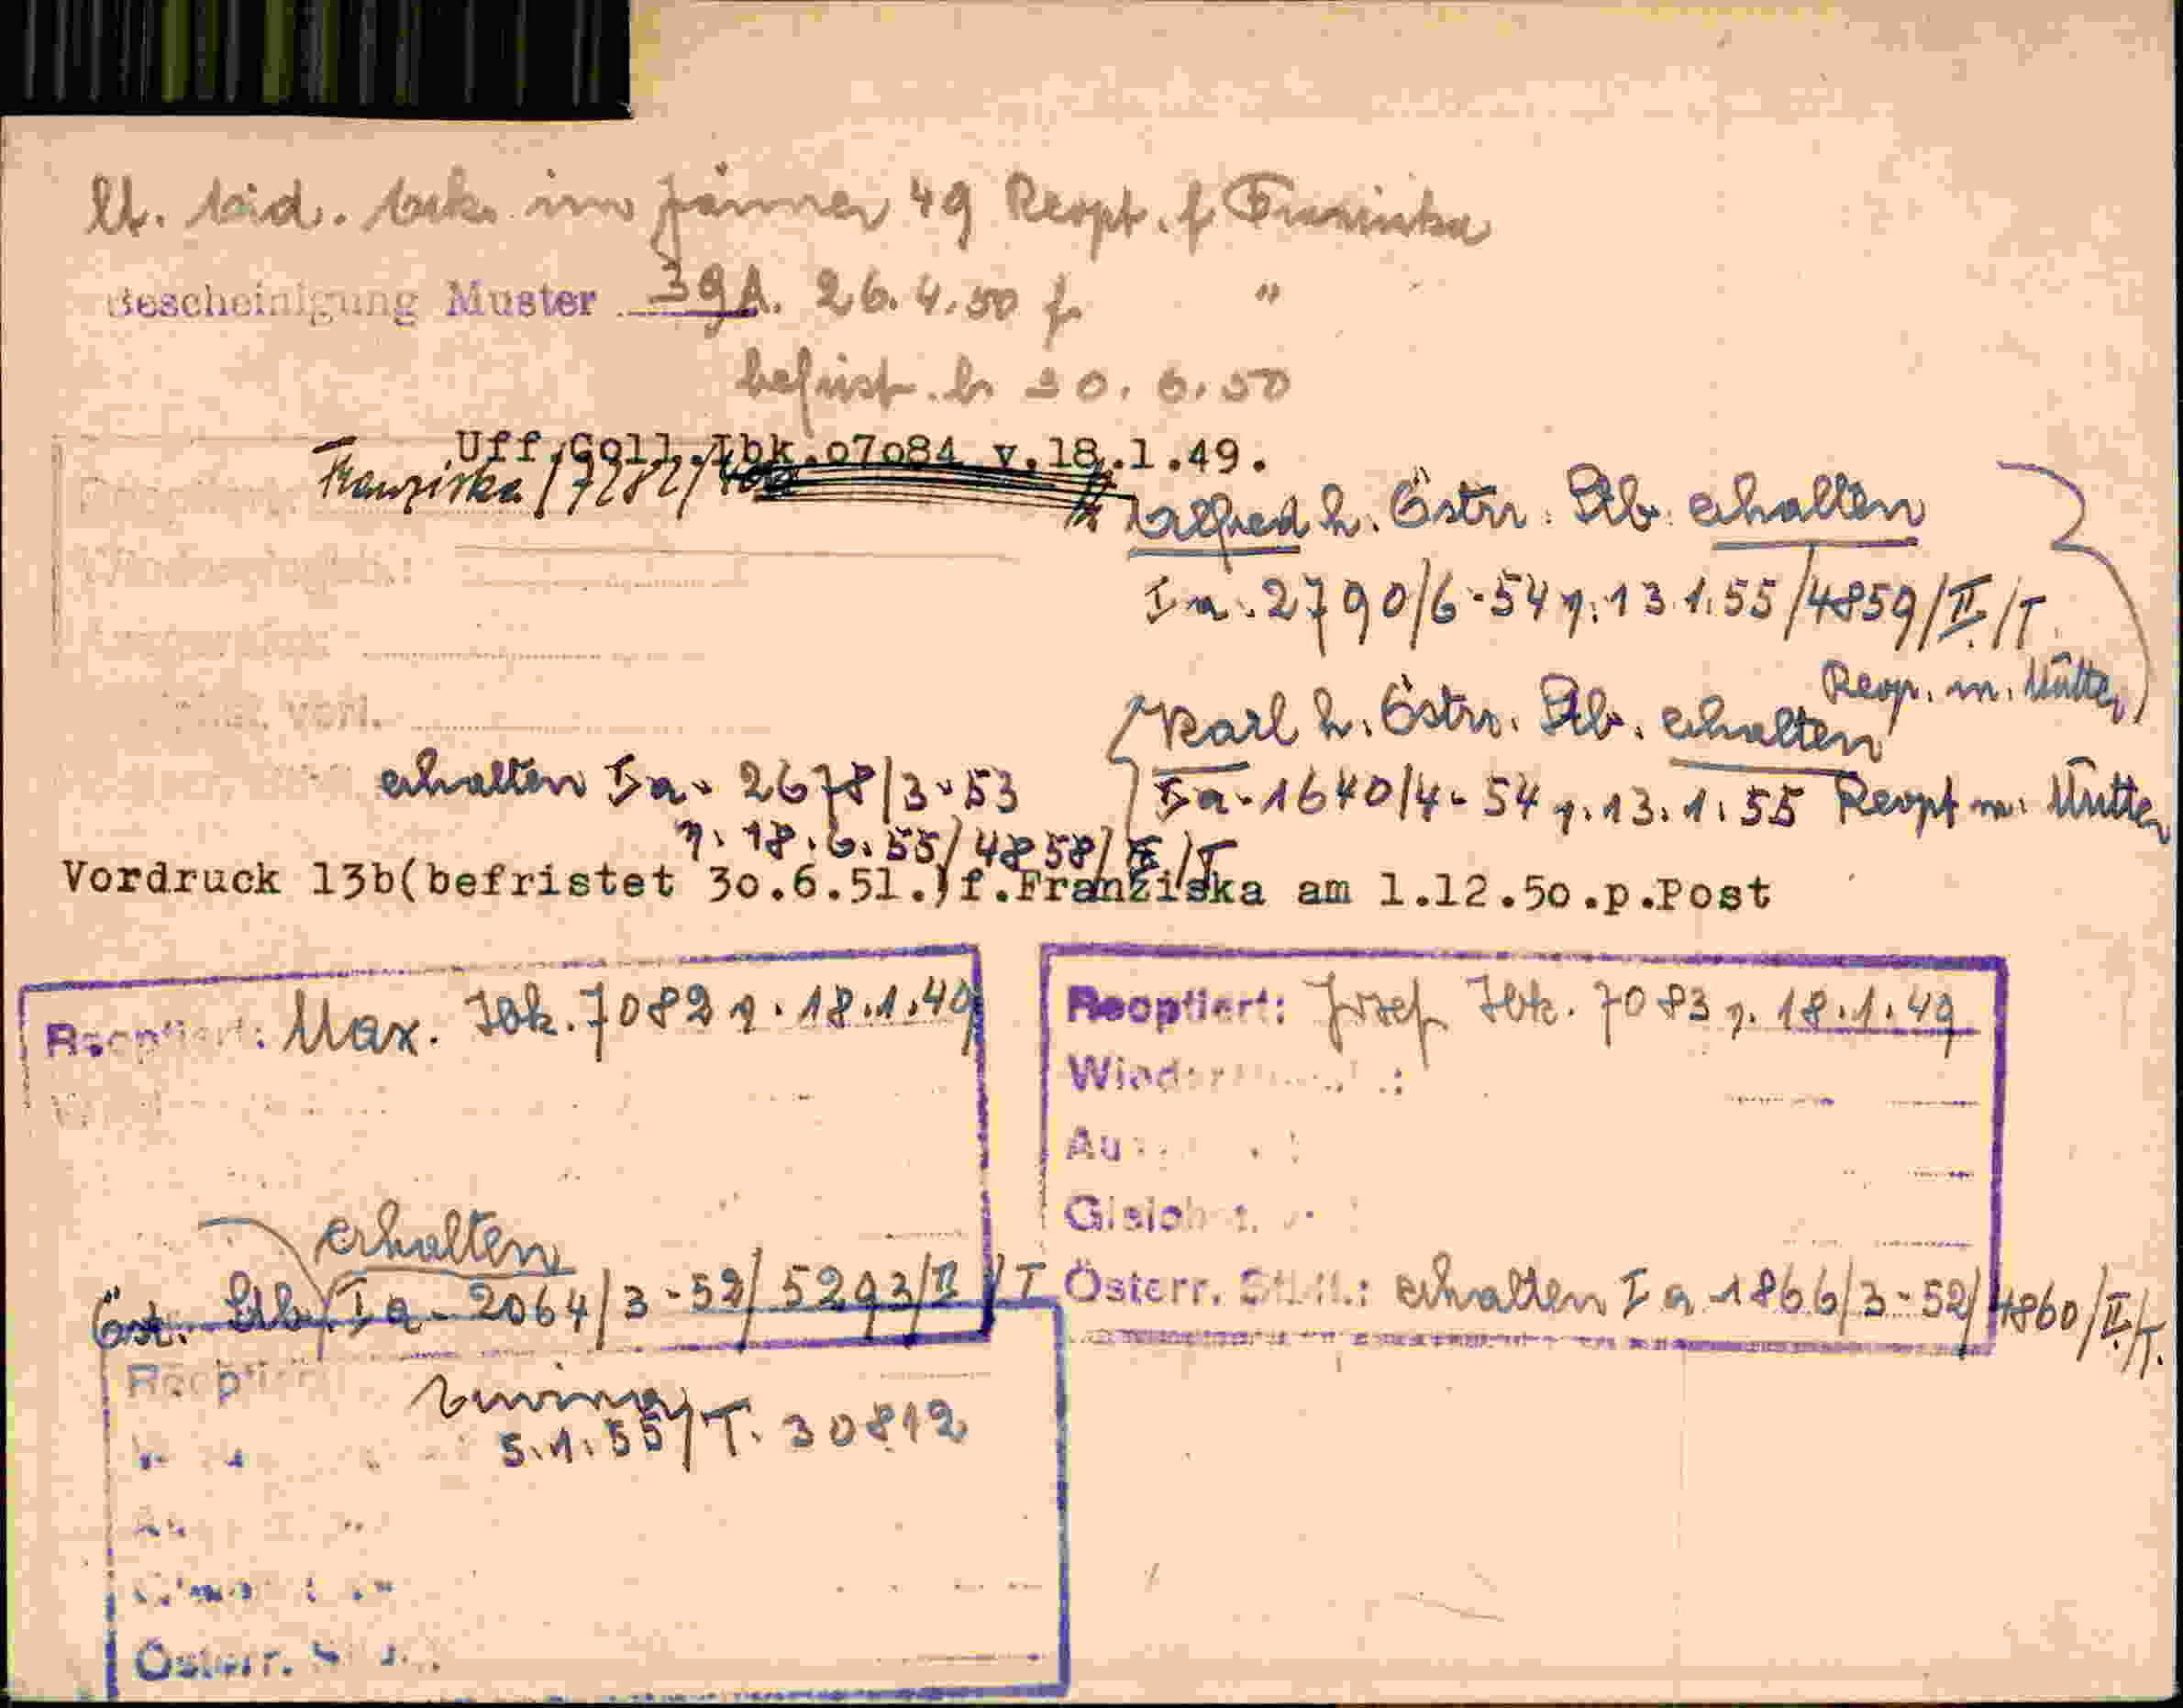 lt. im Jänner 49 Reopt. f Franziska
Bescheinigung Muster 39A. 26.4.50 f. "
befrist. b. 30.6.50
Uff.Coll.Ibk.o7o84 v.18.1.49.
Franziska
Alfred h. Östr. Stb. erhalten
Ia. 2790/6-54 v. 13.1.55/4859/II/T.
Reop. m. Mutter
Karl h. Östr. Stb. erhalten
erhalten Ia- 2678/3-53
Ia-1640/4-54 v. 13.1.55 Reopt m. Mutter
v. 18.6.55/4858/II/T
Vordruck 13b(befristet 3o.6.51.)f.Franziska am 1.12.5o.p.Post
Reoptiert: Max. Ibk. 7082 v. 18.1.49
Reoptiert: Josef Ibk. 7083 v. 18.1.49
erhalten
Öst. Stb. Ia-2064/3-52/5293/II/T
Österr. Stb.: erhalten Ia-1866/3-52/4860/II/T.
Reoptiert
5.1.55/T. 30812
Österr.